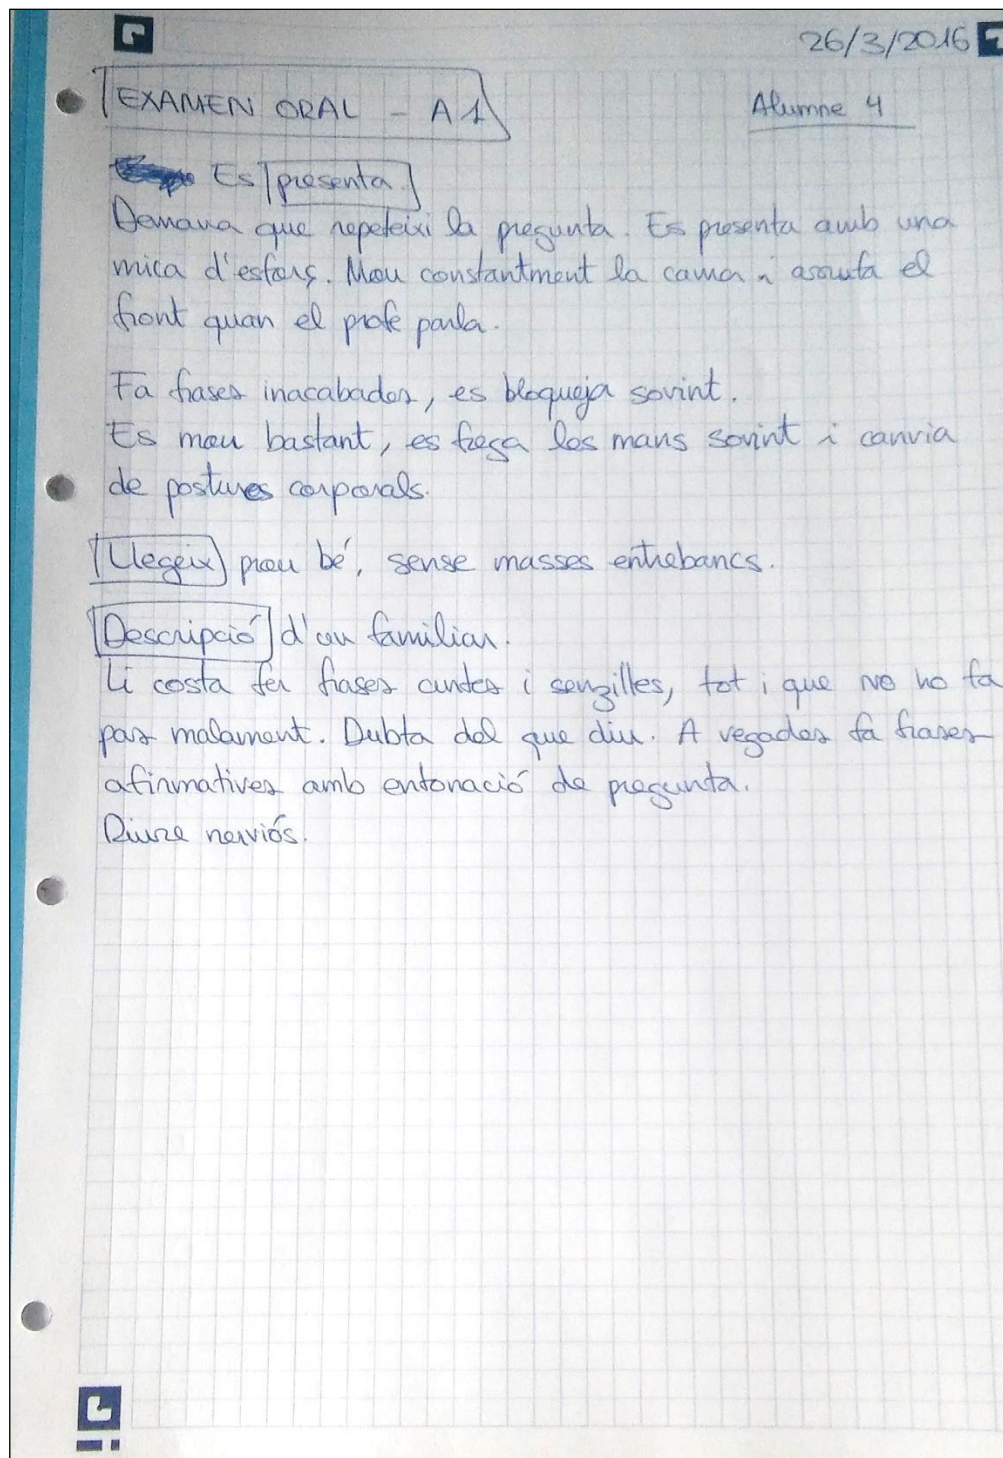 26/3/2016
EXAMEN ORAL - A1
Alumne 4
Es presenta.
Demana que repeteixi la pregunta. Es presenta amb una
mica d'esforç. Mou constantment la cama i arrufa el
front quan el profe parla.
Fa frases inacabades, es bloqueja sovint.
Es mou bastant, es frega les mans sovint i canvia
de postures corporals.
Llegeix prou bé, sense masses entrebancs.
Descripció d'un familiar.
Li costa fer frases curtes i senzilles, tot i que no ho fa
pas malament. Dubta del que diu. A vegades fa frases
afirmatives amb entonació de pregunta.
Riure nerviós.